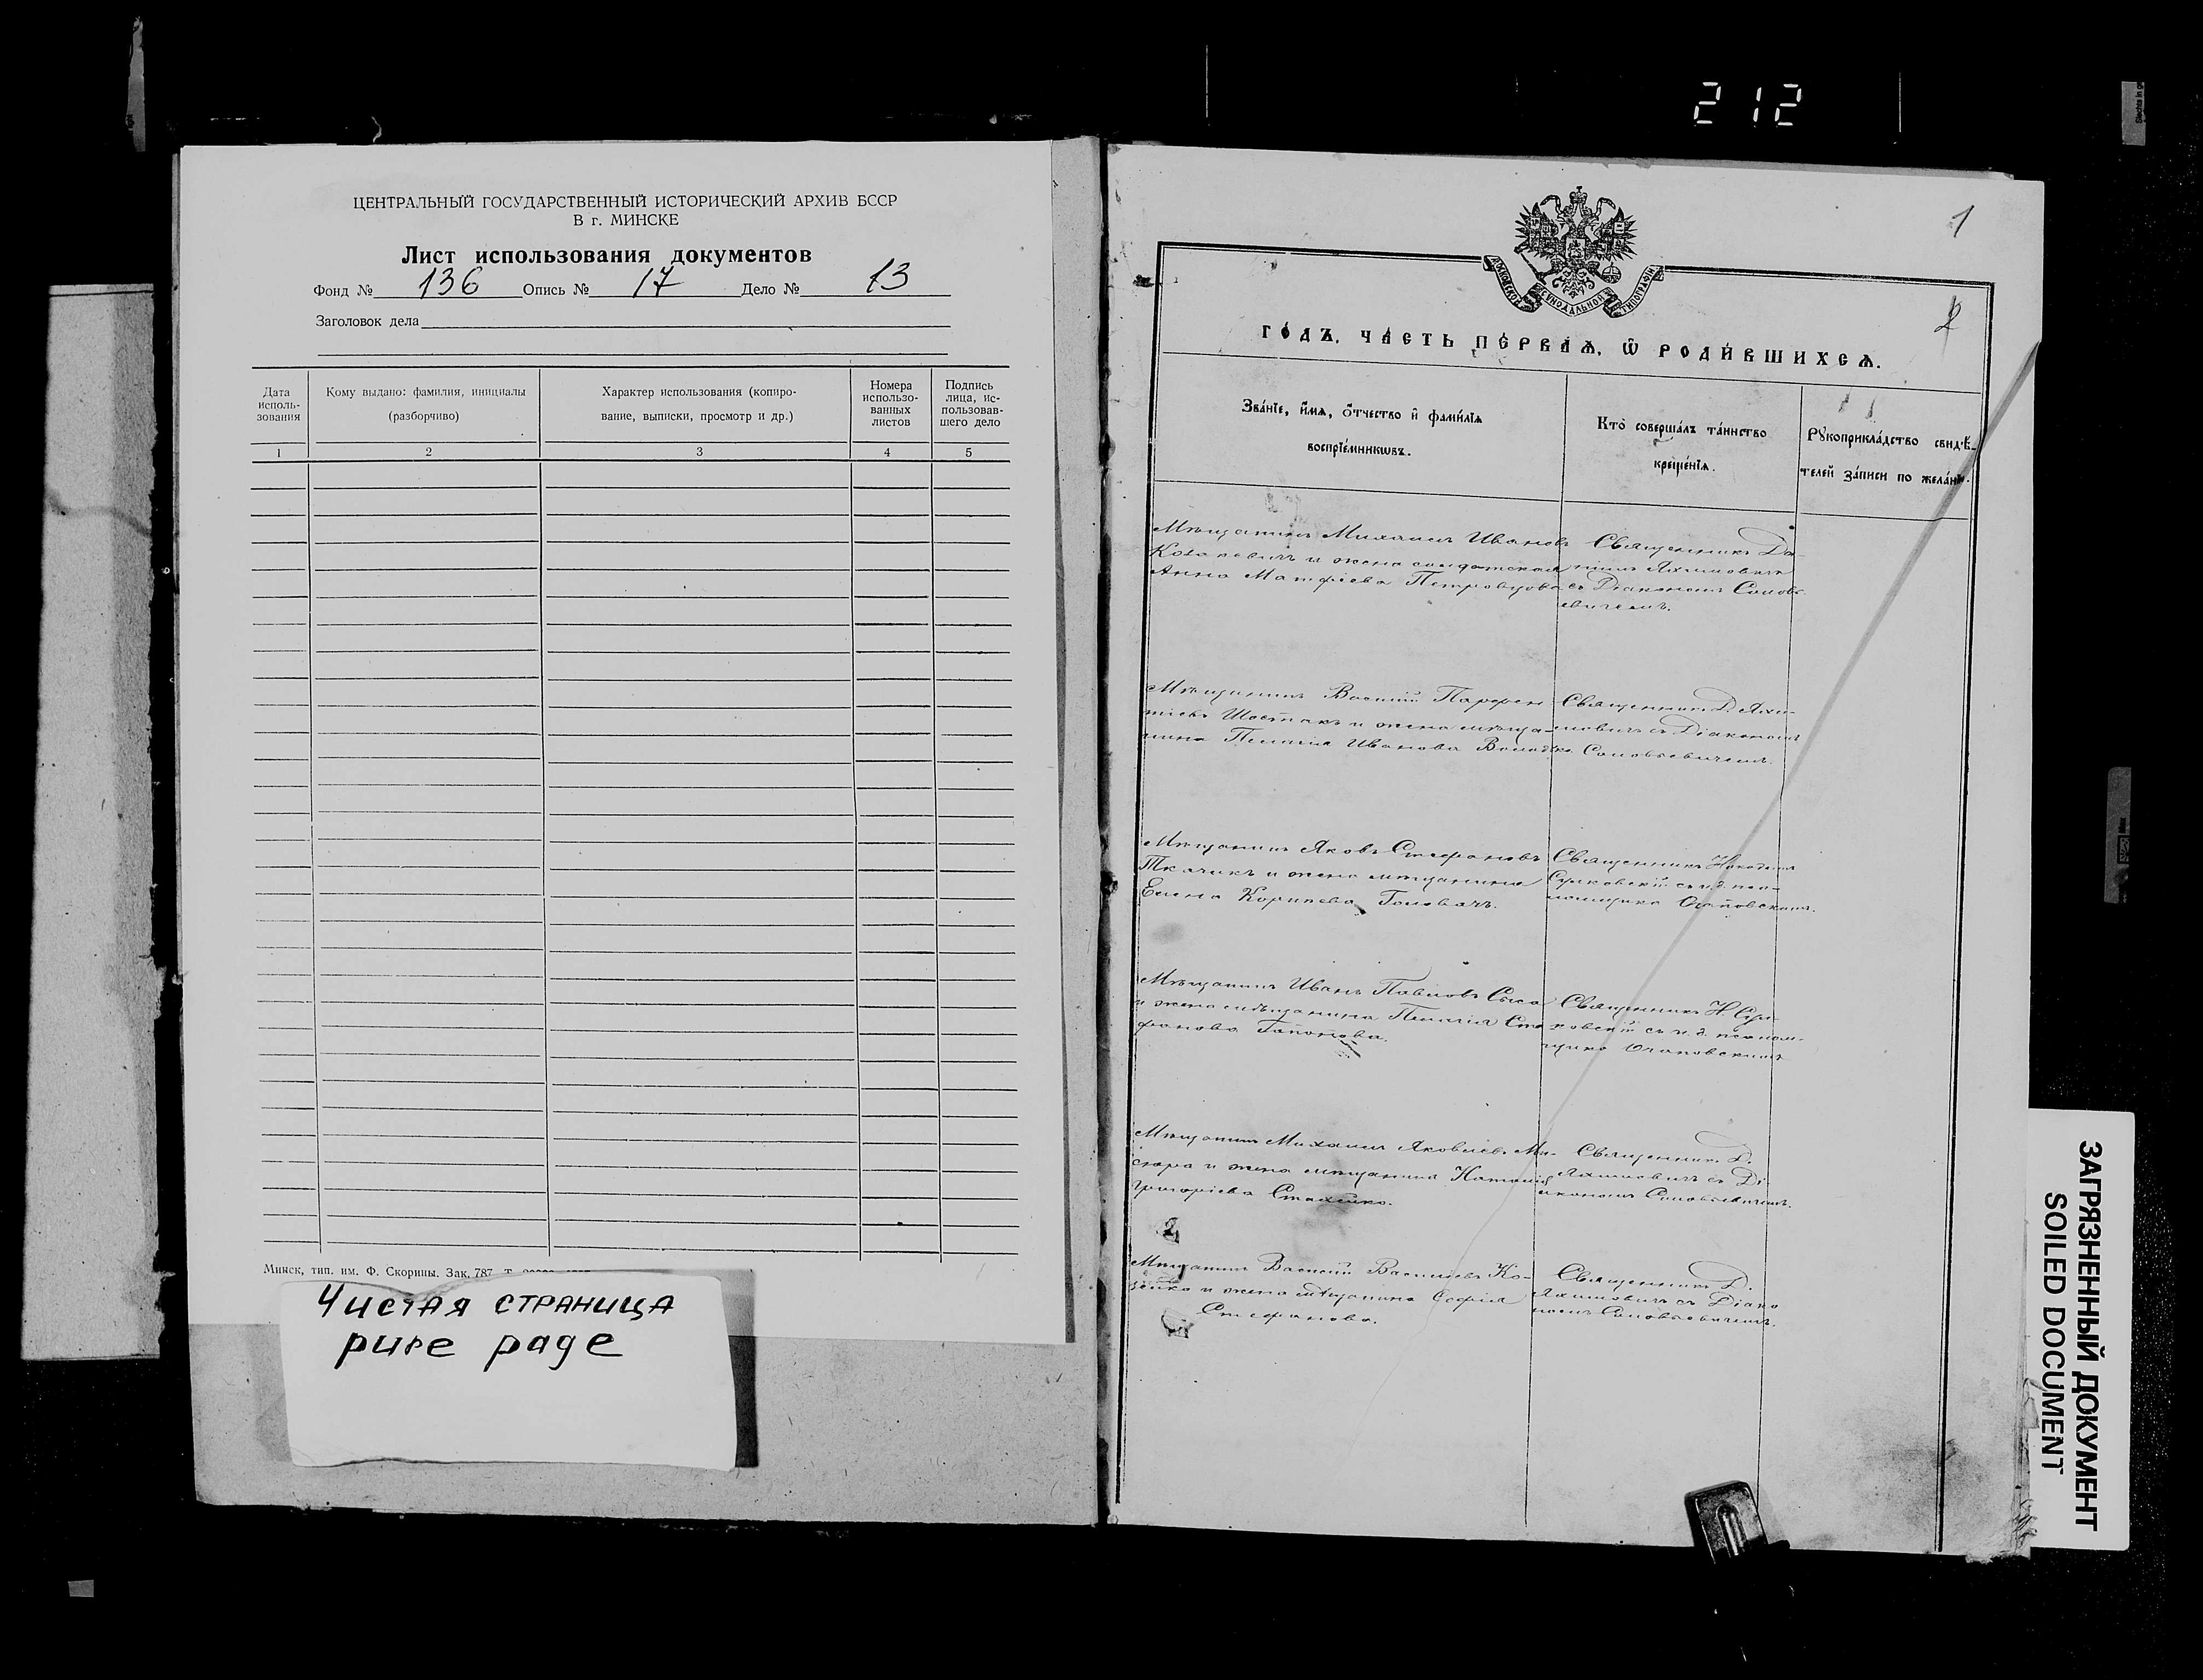 212
ЦЕНТРАЛЬНЫЙ ГОСУДАРСТВЕННЫЙ ИСТОРИЧЕСКИЙ АРХИВ БССР
В г. МИНСКЕ
Лист использования документов
Фонд № 136 Опись № 17 Дело № 13
Заголовок дела
Дата исполь-
зования
Кому выдано: фамилия, инициалы
(разборчиво)
Характер использования (копиро-
вание, выписки, просмотр и др.)
Номера
использо-
ванных
листов
Подпись
лица, ис-
пользовав-
шего дело
1 2 3 4 5
Минск, тип. им. Ф. Скорины. Зак. 787.
Чистая страница
pure page
1
2
МОСКОВСКОЙ СѴНОДАЛЬНОЙ ТИПОГРАФІИ
ГО́ДЪ, ЧА́СТЬ ПЕ́РВАѦ, Ѡ҆ РОДИ́ВШИХСѦ.
Зва́нїе, и҆́мѧ, ѻ҆́тчество и҆ фами́лїѧ
воспрїе́мникѡвъ.
Кто̀ соверша́лъ та́инство
креще́нїѧ.
Рꙋкоприкла́дство свидѣ́-
телей за́писи по жела́нїю.
Мѣщанинъ Михаилъ Ивановъ
и жена солдатская
Анна Матфіева Петровцова
Священникъ Да-
ніилъ Яхимовичъ
съ Діакономъ Соловь-
евичемъ.
Мѣщанинъ Василій Парфен
тіевъ Шостакъ и жена мѣща-
нина Пелагія Иванова
Священникъ Д. Яхи-
мовичъ съ Діакономъ
Соловьевичемъ.
Мѣщанинъ Яковъ Стефановъ
Ткачикъ и жена мѣщанина
Елена Корнѣева Головачъ.
Священникъ Никодимъ
съ и. д. пса-
ломщика
Мѣщанинъ Иванъ Павловъ
и жена мѣщанина Пелагія Сте
фанова Гапонова.
Священникъ Н.
съ и. д. псалом-
щика
Мѣщанинъ Михаилъ Яковлевъ Ми-
сюра и жена мѣщанина Наталія
Григоріева Стахейко.
Священникъ Д.
Яхимовичъ съ Ді
акономъ Соловьевичемъ.
2
Мѣщанинъ Василій Васильевъ Ко-
зейко и жена мѣщанина Софія
Стефанова.
Священникъ Д.
Яхимовичъ съ Діако
номъ Соловьевичемъ.
ЗАГРЯЗНЕННЫЙ ДОКУМЕНТ
SOILED DOCUMENT